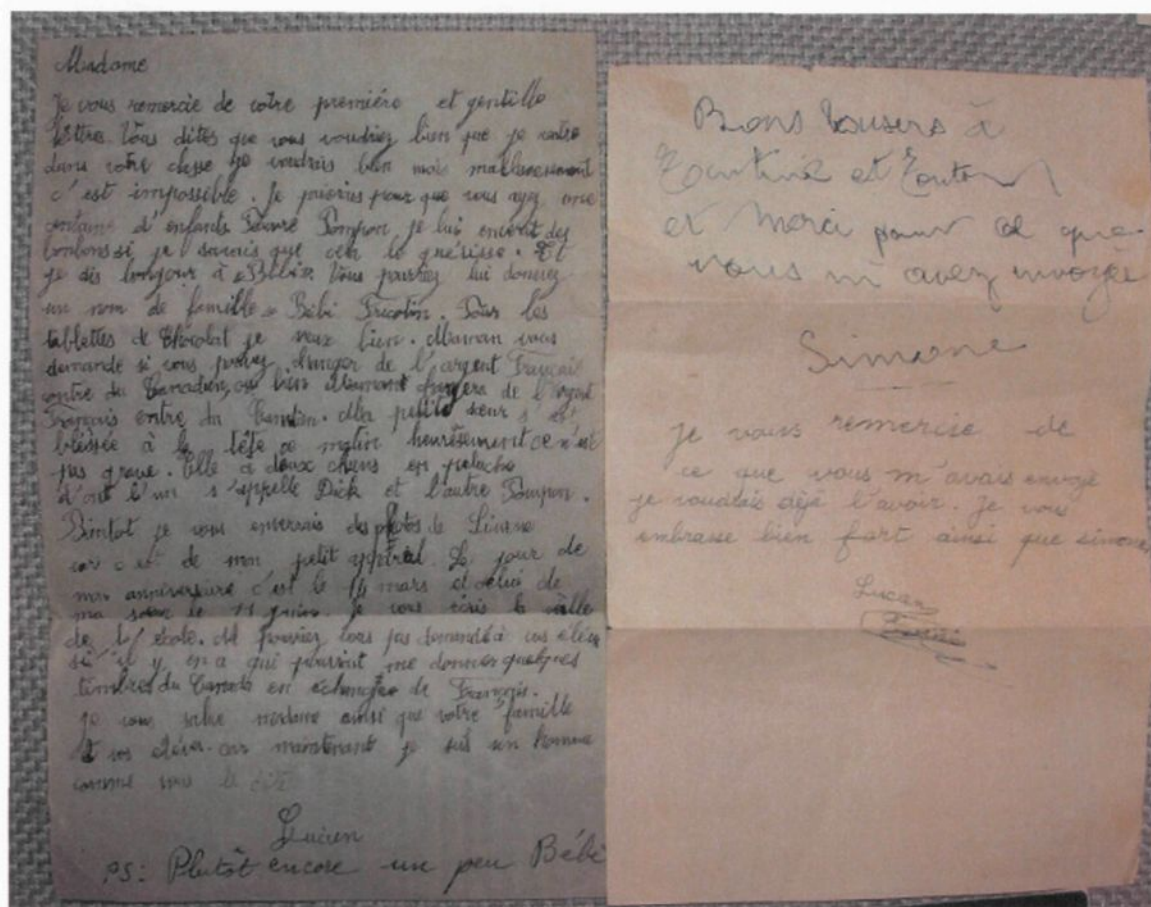 Madame
Je vous remercie de votre première et gentille
lettre. Vous dites que vous voudriez bien que je rentre
dans votre classe je voudrais bien mais malheureusement
c'est impossible. Je prierais pour que vous ayez une
centaine d'enfants. Pauvre Pompon je lui enverrai des
bonbons si je savais que cela le guérisse. Et
je dis bonjour à "Bébi". Vous pourriez lui donner
un nom de famille = Bébi Fricotin. Pour les
tablettes de Chocolat je veux bien. Maman vous
demande si vous pouvez changer de l'argent Français
contre du Canadien, ou bien Maman changera de l'argent
Français entre du Canadien. Ma petite sœur s'est
bléssée à la tête ce matin heureusement ce n'est
pas grave. Elle a deux chiens en peluche
d'ont l'un s'appelle Dick et l'autre Pompon.
Bientot je vous enverrais des photos de Simone
car c'est de mon petit appareil. Le jour de
mon anniversaire c'est le 14 mars et celui de
ma sœur le 11 juin. Je vous écris la veille
de l'école. Ne pouviez vous pas demandé à vos élèves
si il y en a qui pourrait me donner quelques
timbres du Canada en échange de Français.
Je vous salue madame ainsi que votre famille
et vos élèves. car maintenant je suis un homme
comme vous le dite
Lucien
PS: Plutôt encore un peu Bébé
Bons bousers à
Tantine et Tonton
et Merci pour ce que
vous m'avez invoyée
Simone
Je vous remercie de
ce que vous m'avais envoyé
je voudrais déjà l'avoir. Je vous
embrasse bien fort ainsi que simone
Lucien